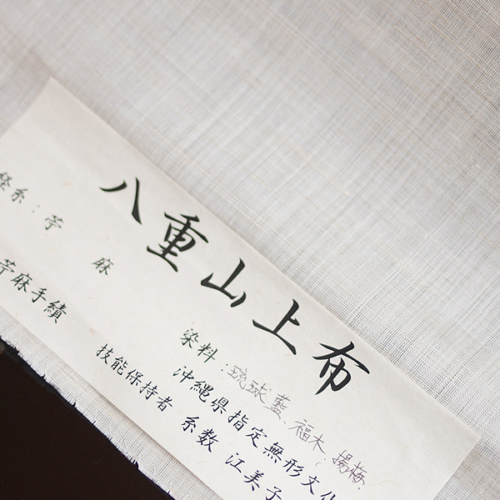 八重山上布
経糸：苧 麻
苧麻手績
染料：琉球藍．福木．揚梅．
沖縄県指定無形文化
技能保持者 糸数 江美子